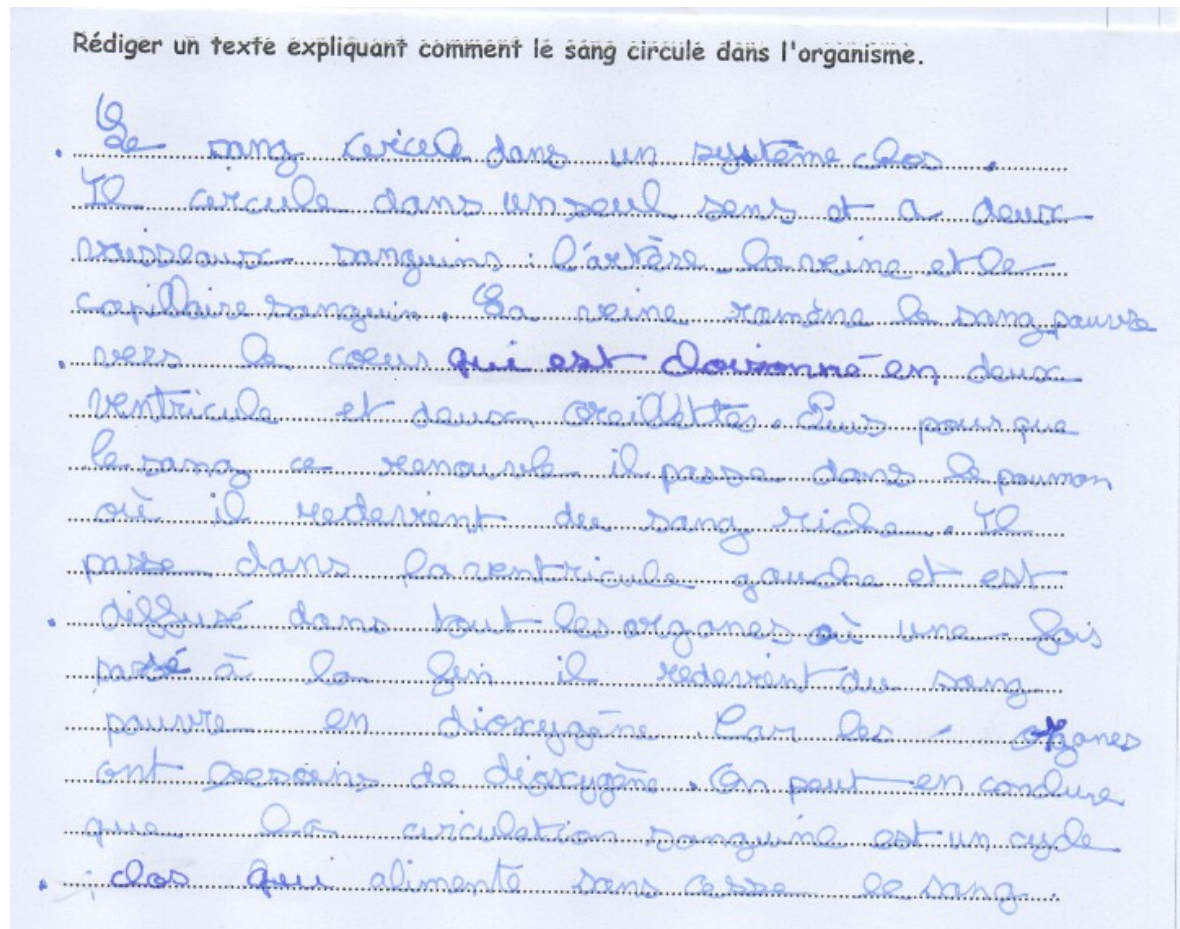 Rédiger un texte expliquant comment le sang circule dans l'organisme.
Le sang circule dans un système clos.
Il circule dans un seul sens et a deux
vaisseaux sanguins : l'artère la veine et le
capillaire sanguin. La veine ramène le sang pauvre
vers le coeur qui est cloisonné en deux
ventricule et deux oreillettes. Puis pour que
le sang ce renouvle il passe dans le poumon
où il redevient du sang riche. Il
passe dans la ventricule gauche et est
diffusé dans tout les organes où une fois
passé à la fin il redevient du sang
pauvre en dioxygène. Car les organes
ont besoins de dioxygène. On peut en conclure
que la circulation sanguine est un cycle
clos qui alimente sans cesse le sang.